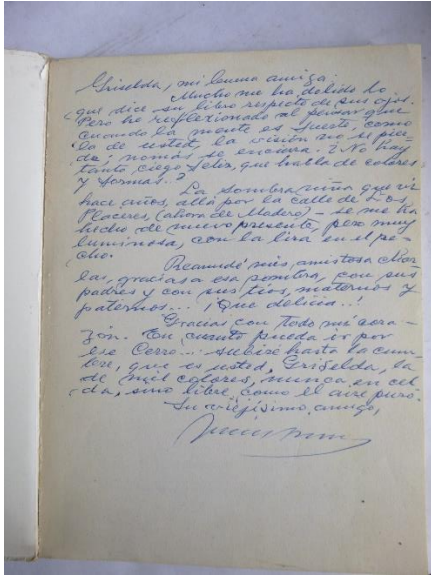 Griselda, mi buena amiga:
Mucho me ha dolido lo
que dice su libro respecto de sus ojos.
Pero he reflexionado al pensar que
cuando la mente es fuerte, como
la de usted, la visión no se pier-
de; nomás se encierra. ¿No hay
tanto ciego feliz, que habla de colores
y formas..?
La sombra niña que vi
hace años, allá por la calle de Los
Placeres, (ahora de Madero) – se me ha
hecho de nuevo presente, pero muy
luminosa, con la lira en el pe-
cho.
Reanudé mis amistosas
las, gracias a esa sombra, con sus
padres y con sus tíos, maternos y
paternos... ¡Qué delicia..!
Gracias con todo mi cora-
zón. En cuanto pueda ir por
ese Cerro... subiré hasta la cum-
bre, que es usted, Griselda, la
de mil colores, nunca en cel-
da, sino libre como el aire puro.
Su viejísimo amigo,